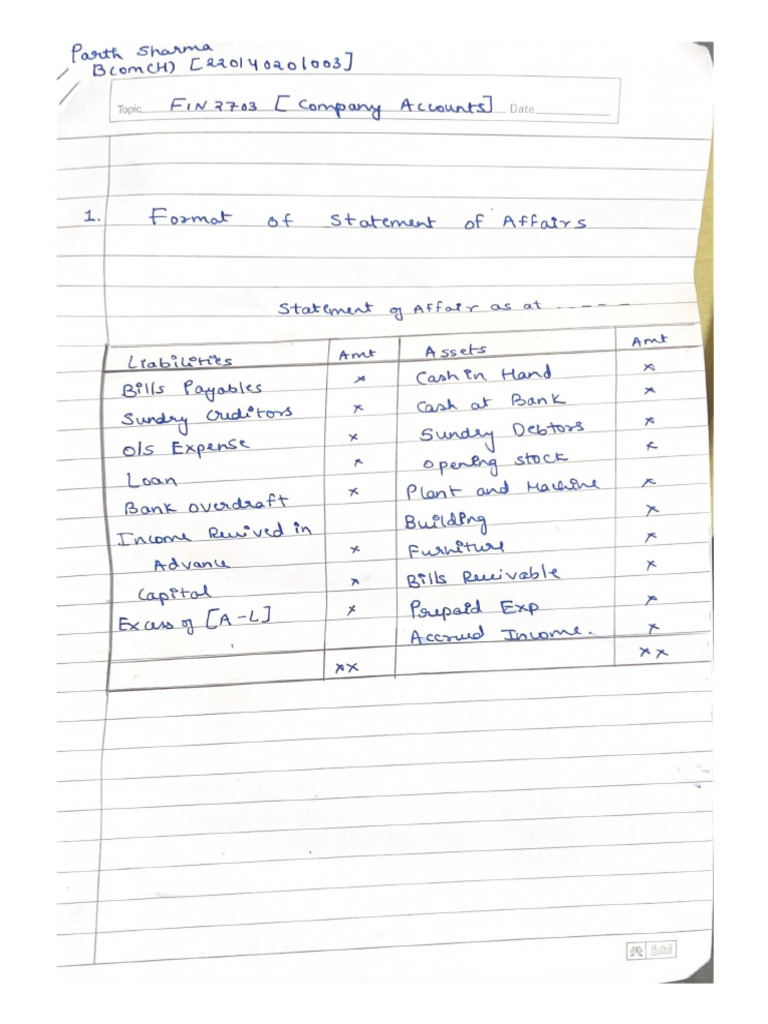 Parth Sharma
Bcom(H) [220140201003]
Topic FIN2703 [Company Accounts] Date
1. Format of Statement of Affairs
Statement of Affair as at -----
Liabilities Amt Assets Amt
Bills Payables x Cash in Hand x
Sundry Creditors x Cash at Bank x
O/S Expense x Sundry Debtors x
Loan x Opening stock x
Bank overdraft x Plant and Machine x
Income Received in Building x
Advance x Furniture x
Capital x Bills Receivable x
Excess of [A-L] x Prepaid Exp x
Accrued Income. x
xx xx